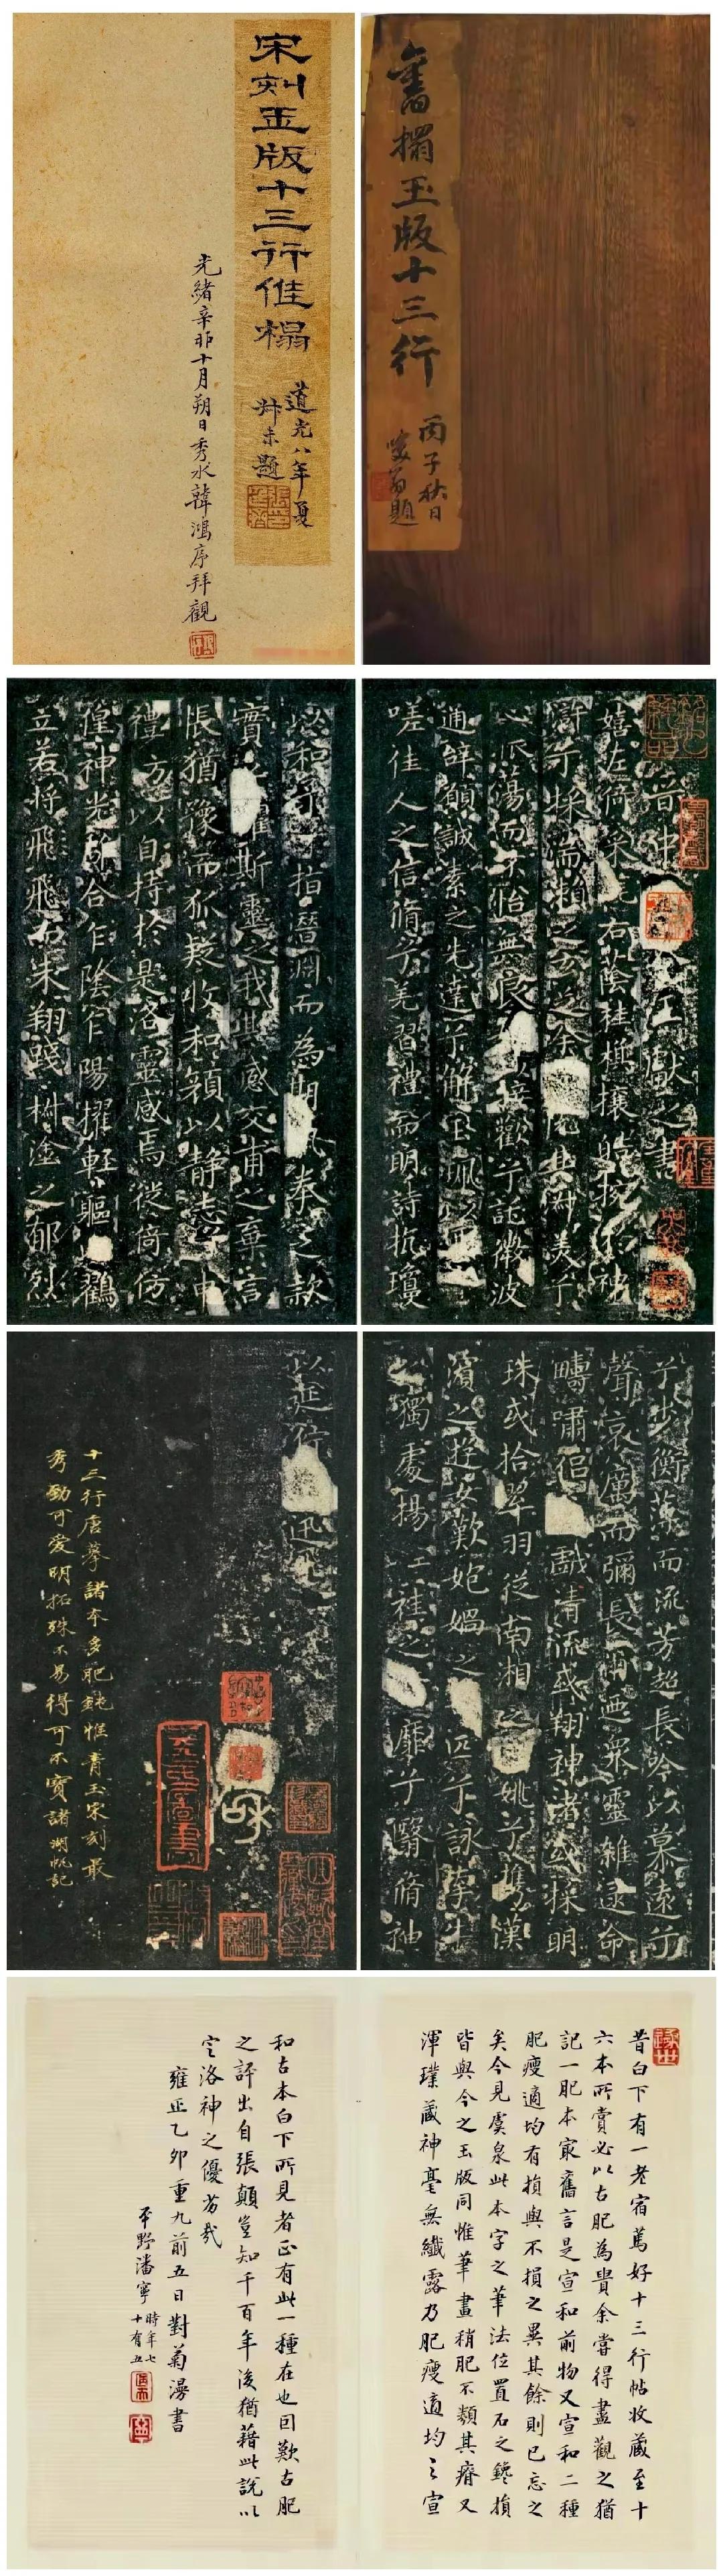 舊搨玉版十三行
丙子秋日
題
宋刻玉版十三行佳榻
道光八年夏
叔未題
光緒辛卯十月朔日秀水韓鴻序拜觀
晉 王獻之書
嬉左倚采旄右蔭桂旗攘皓捥於神
滸兮採湍瀨之玄芝余 其淑美兮
心振蕩而不怡無良 接歡兮託微波
通辭願誠素之先達兮解玉珮以
嗟佳人之信脩兮羌習禮而明詩抗瓊
以和予兮指潛淵而為期執拳之款
實 懼斯靈之我欺感交甫之棄言
悵猶豫而狐疑收和顏以静志 申
禮方以自持於是洛靈感焉徙倚仿
偟神光 合乍陰乍陽擢輕軀 鶴
立若將飛 未翔踐椒塗之郁烈
兮步衡薄而流芳超長吟以慕遠兮
聲哀厲而彌長爾迺眾靈雜遝命
疇嘯侶 戲清流或翔神渚或採明
珠或拾翠羽從南湘之 姚兮攜漢
濱之遊女歎炮媧之 匹兮詠牽牛
之獨處揚 袿之 靡兮翳脩神
以延佇 迅飛
和
十三行唐摹諸本多肥鈍惟青玉宋刻最
秀勁可愛明拓殊不易得可不寶諸 湖帆記
昔白下有一老宿篤好十三行帖收藏至十
六本所賞必以古肥為貴余嘗得盡觀之猶
記一肥本最舊言是宣和前物又宣和二種
肥瘦適均有損與不損之異其餘則已忘之
矣今見虞泉此本字之筆法位置石之鑱損
皆與今之玉版同惟筆畫稍肥不類其瘠又
渾璞藏神毫無纖露乃肥瘦適均之宣
和古本白下所見者正有此一種在也因歎古肥
之評出自張顛豈知千百年後猶藉此說以
定洛神之優劣哉
雍正乙卯重九前五日對菊漫書
平野潘寧
時年七
十有五